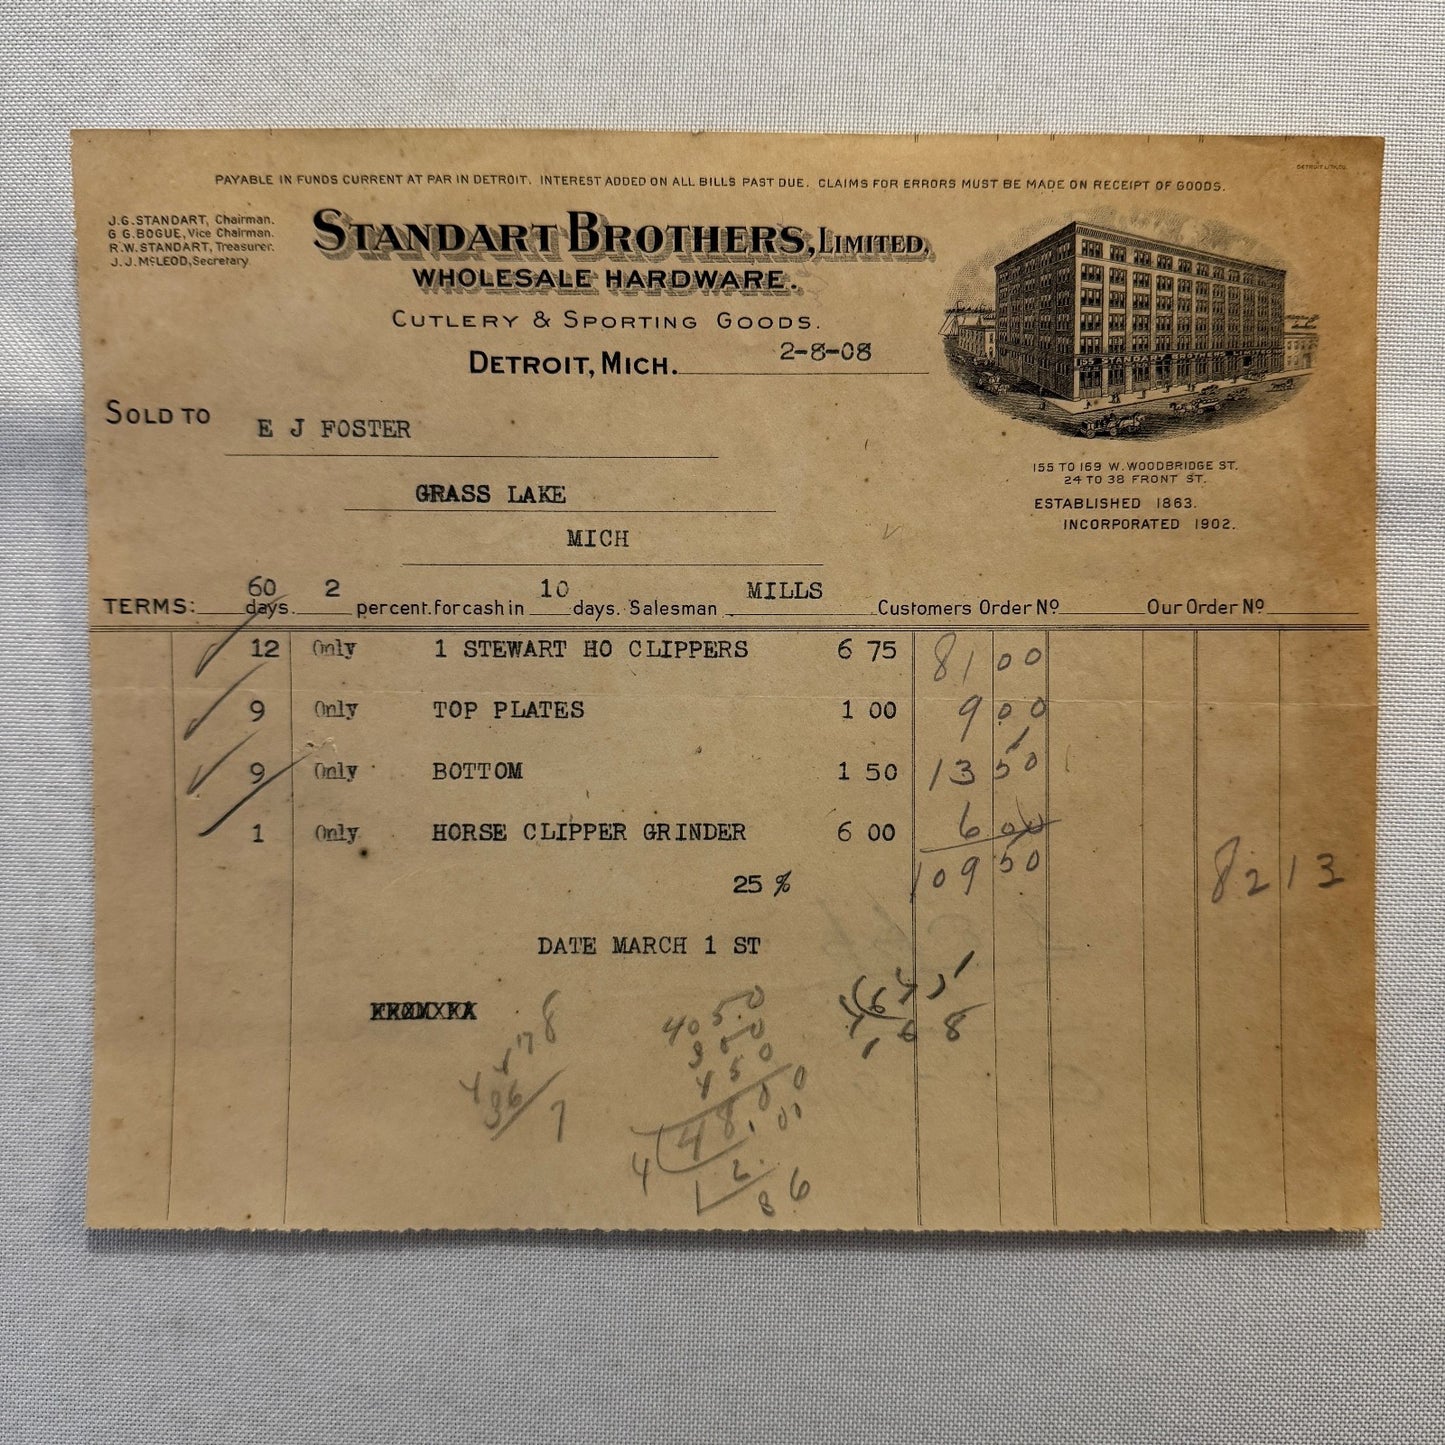 DETROIT LITH. CO.
PAYABLE IN FUNDS CURRENT AT PAR IN DETROIT. INTEREST ADDED ON ALL BILLS PAST DUE. CLAIMS FOR ERRORS MUST BE MADE ON RECEIPT OF GOODS.
J.G. STANDART, Chairman.
G G. BOGUE, Vice Chairman.
R.W. STANDART, Treasurer.
J.J. McLEOD, Secretary
STANDART BROTHERS, LIMITED,
WHOLESALE HARDWARE.
CUTLERY & SPORTING GOODS.
DETROIT, MICH. 2-8-08
155 TO 169 W. WOODBRIDGE ST.
24 TO 38 FRONT ST.
ESTABLISHED 1863.
INCORPORATED 1902.
SOLD TO E J FOSTER
GRASS LAKE
MICH
TERMS: 60 days. 2 percent. for cash in 10 days. Salesman MILLS Customers Order No Our Order No
12 Only 1 STEWART HO CLIPPERS 6 75 81 00
9 Only TOP PLATES 1 00 9 00
9 Only BOTTOM 1 50 13 50
1 Only HORSE CLIPPER GRINDER 6 00 6 00
25 % 109 50 82 13
DATE MARCH 1 ST